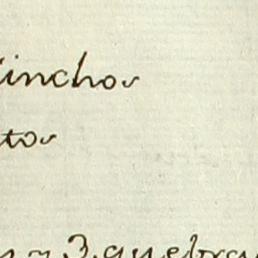 inchos
tos
3. quebra